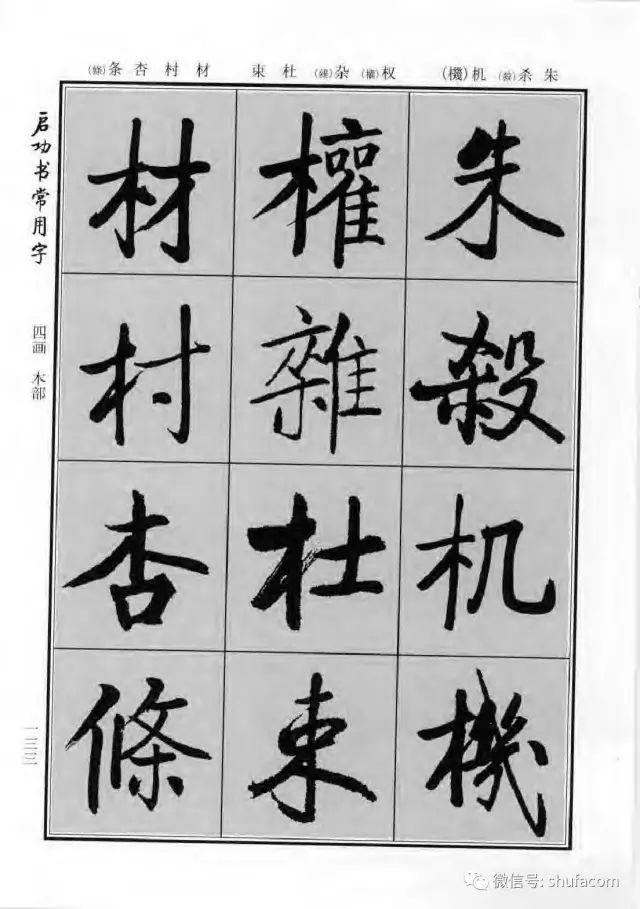 条(條) 杏 村 材 束 杜 杂(雜) 权(權) (機)机 杀(殺) 朱
启功书常用字
四画 木部
一三三
朱
殺
机
機
權
雜
杜
束
材
村
杏
條
微信号: shufacom